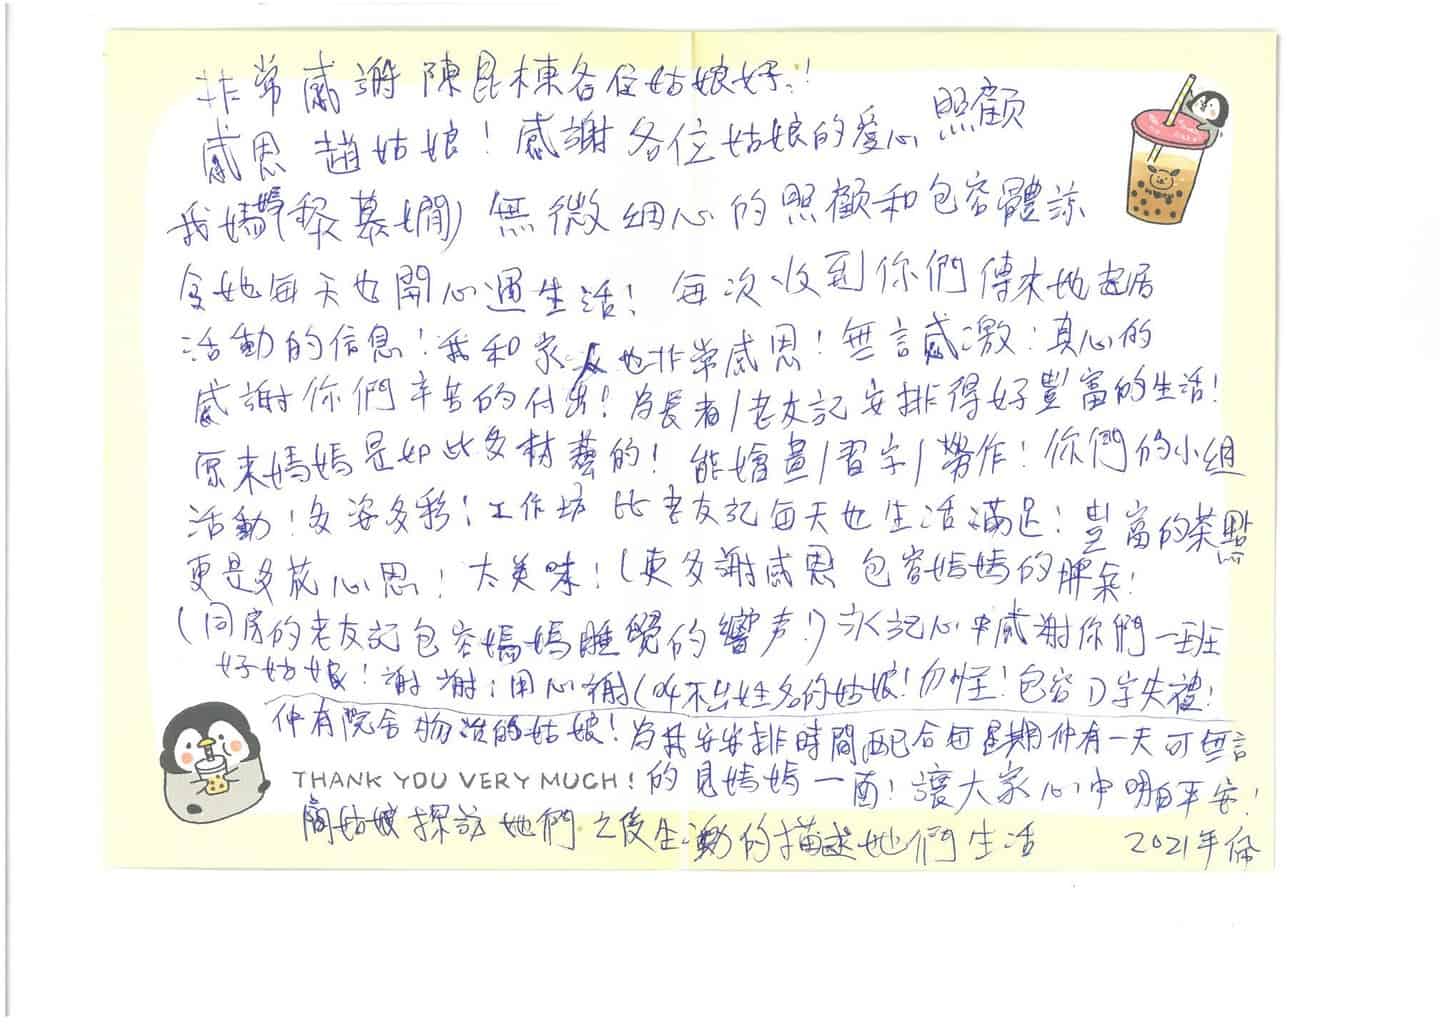 非常感謝陳昆棟各位姑娘好!!
感恩 趙姑娘！感謝各位姑娘的爱心照顧
我媽媽(黎慕嫻) 無微細心的照顧和包容體諒
令她每天也開心過生活！每次收到你們傳來她起居
活動的信息！我和家人也非常感恩！無言感激：真心的
感謝你們辛苦的付出！為長者/老友記安排得好豐富的生活！
原來媽媽是如此多材藝的！能繪畫/習字/勞作！你們的小組
活動！多姿多彩！工作坊 比老友記每天也生活滿足！豐富的茶點
更是多放心思！太美味！(更多謝感恩 包容媽媽的脾氣！
(同房的老友記包容媽媽睡覺的響声！) 永記心中感謝你們一班
好姑娘！謝謝！用心謝(叫不出姓名的姑娘！勿怪！包容D字失禮！
仲有院舍物流的姑娘！為我安安排時間配合每星期仲有一天可無言
THANK YOU VERY MUCH! 的見媽媽一面！讓大家心中明白平安！
簡姑娘探訪她們之後生動的描述她們生活 2021年